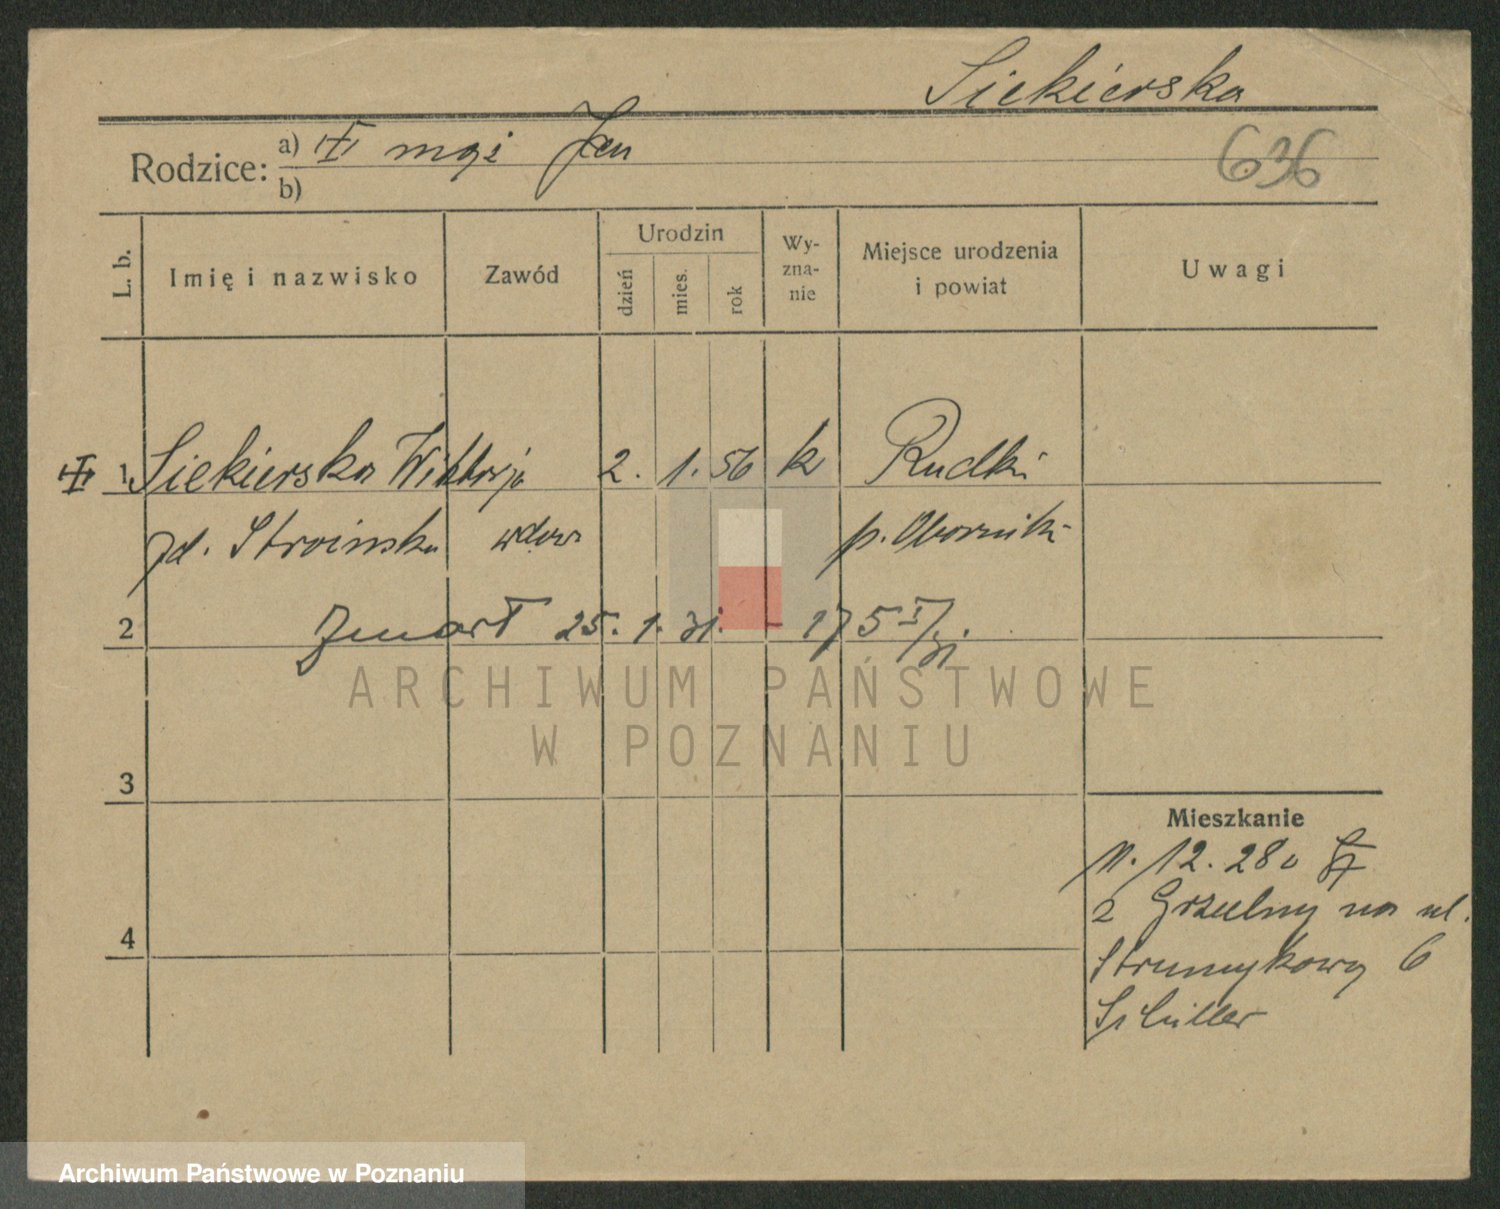 Siekierska
Rodzice: a) mąż Jan
b)
636
L. b.
Imię i nazwisko
Zawód
Urodzin
dzień
mies.
rok
Wy-
zna-
nie
Miejsce urodzenia
i powiat
Uwagi
1 Siekierska Wiktorja 2. 1. 56 k Rudki
zd. Stroinska wdowa p. Oborniki
2 Zmarł 25. 1. 31. - 175 I/31
3
4
Mieszkanie
11. 12. 28
z Grzelny na ul.
Strumykową 6
Schiller
ARCHIWUM PAŃSTWOWE
W POZNANIU
Archiwum Państwowe w Poznaniu